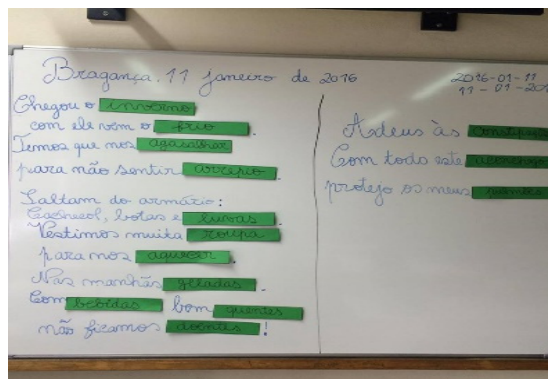 Bragança, 11 janeiro de 2016
2016-01-11
11-01-201
Chegou o inverno
com ele vem o frio.
Temos que nos agasalhar
para não sentir arrepio.
Saltam do armário:
Cachecol, botas e luvas.
Vestimos muita roupa
para nos aquecer.
Nas manhãs geladas.
Com bebidas bem quentes
não ficamos doentes!
Adeus às
Com todo este
protejo os meus